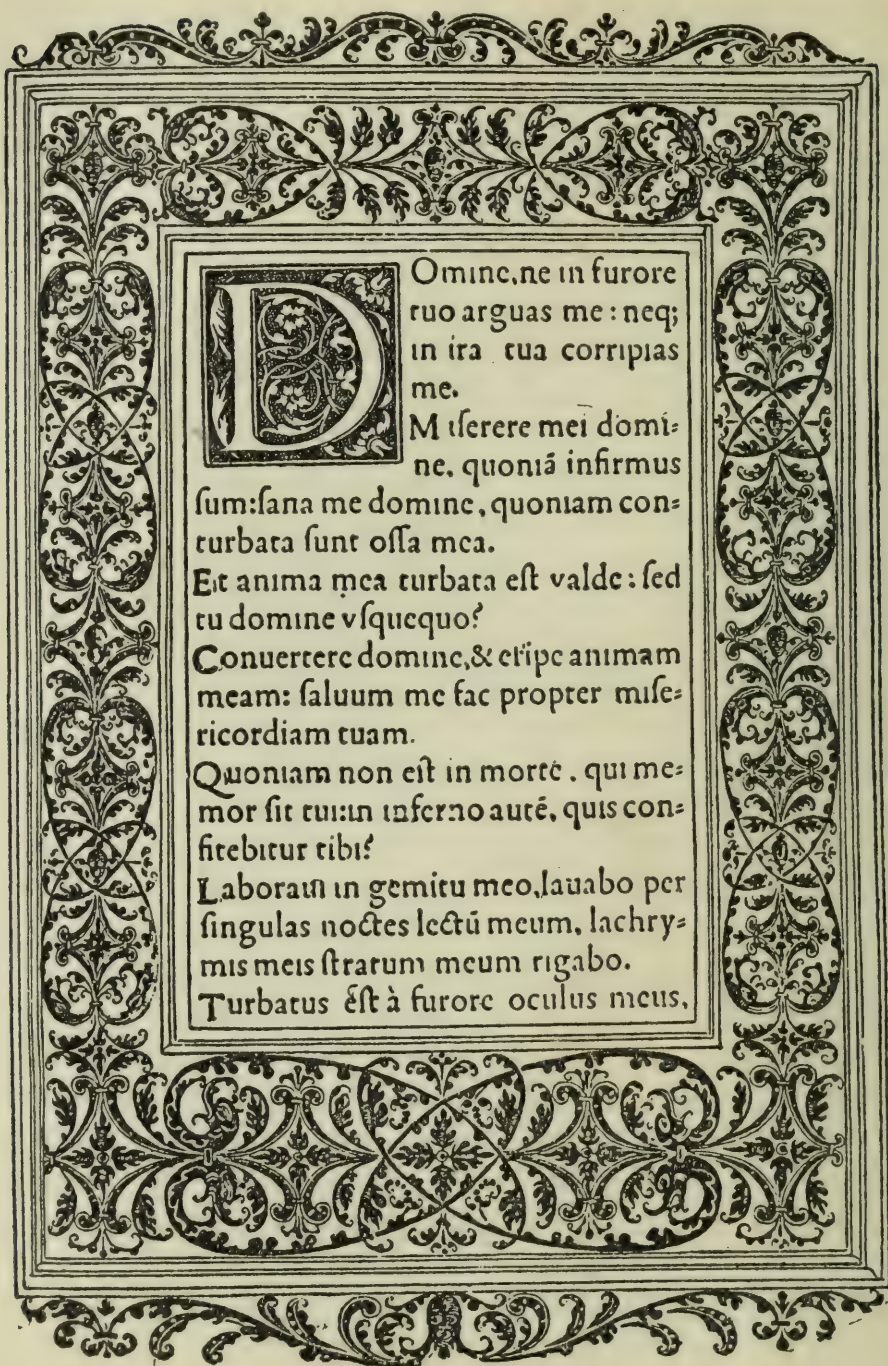 DOmine, ne in furore
tuo arguas me : neq;
in ira tua corripias
me.
Miſerere mei domi=
ne, quoniã infirmus
ſum:ſana me domine, quoniam con=
turbata ſunt oſſa mea.
Et anima mea turbata eſt valde : ſed
tu domine vſquequo?
Conuertere domine, & eripe animam
meam: ſaluum me fac propter miſe=
ricordiam tuam.
Quoniam non eſt in morte, qui me=
mor ſit tui:in inferno autẽ, quis con=
fitebitur tibi?
Laboraui in gemitu meo, lauabo per
ſingulas noctes lectũ meum, lachry=
mis meis ſtratum meum rigabo.
Turbatus eſt à furore oculus meus,